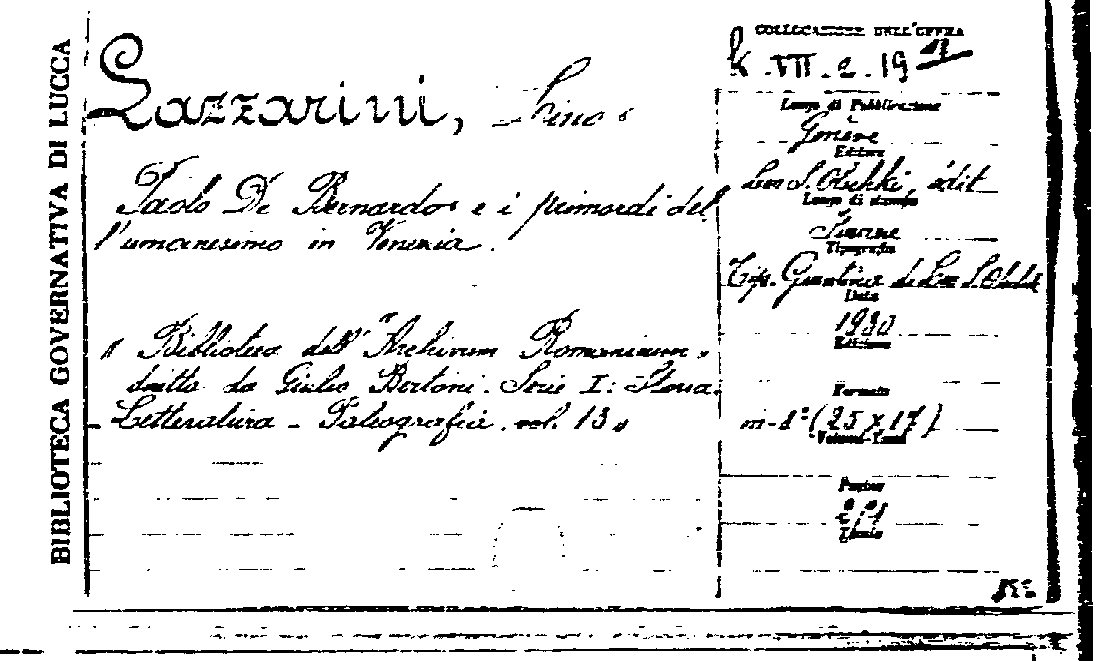 BIBLIOTECA GOVERNATIVA DI LUCCA
Lazzarini, Lino
Paolo De Bernardo e i primordi del
l'umanesimo in Venezia.
" Biblioteca dell' "Archivum Romanicum"
diretta da Giulio Bertoni. Serie I: Storia
Letteratura - Paleografia. vol. 13"
COLLOCAZIONE DELL'OPERA
VII. 2. 19
Luogo di Pubblicazione
Genève
Editore
Leo S. Olschki, édit
Luogo di stampa
Tipografia
Tip. Giuntina di Leo S. Olschki
Data
1930
Edizione
Formato
in-4° (25 x 17)